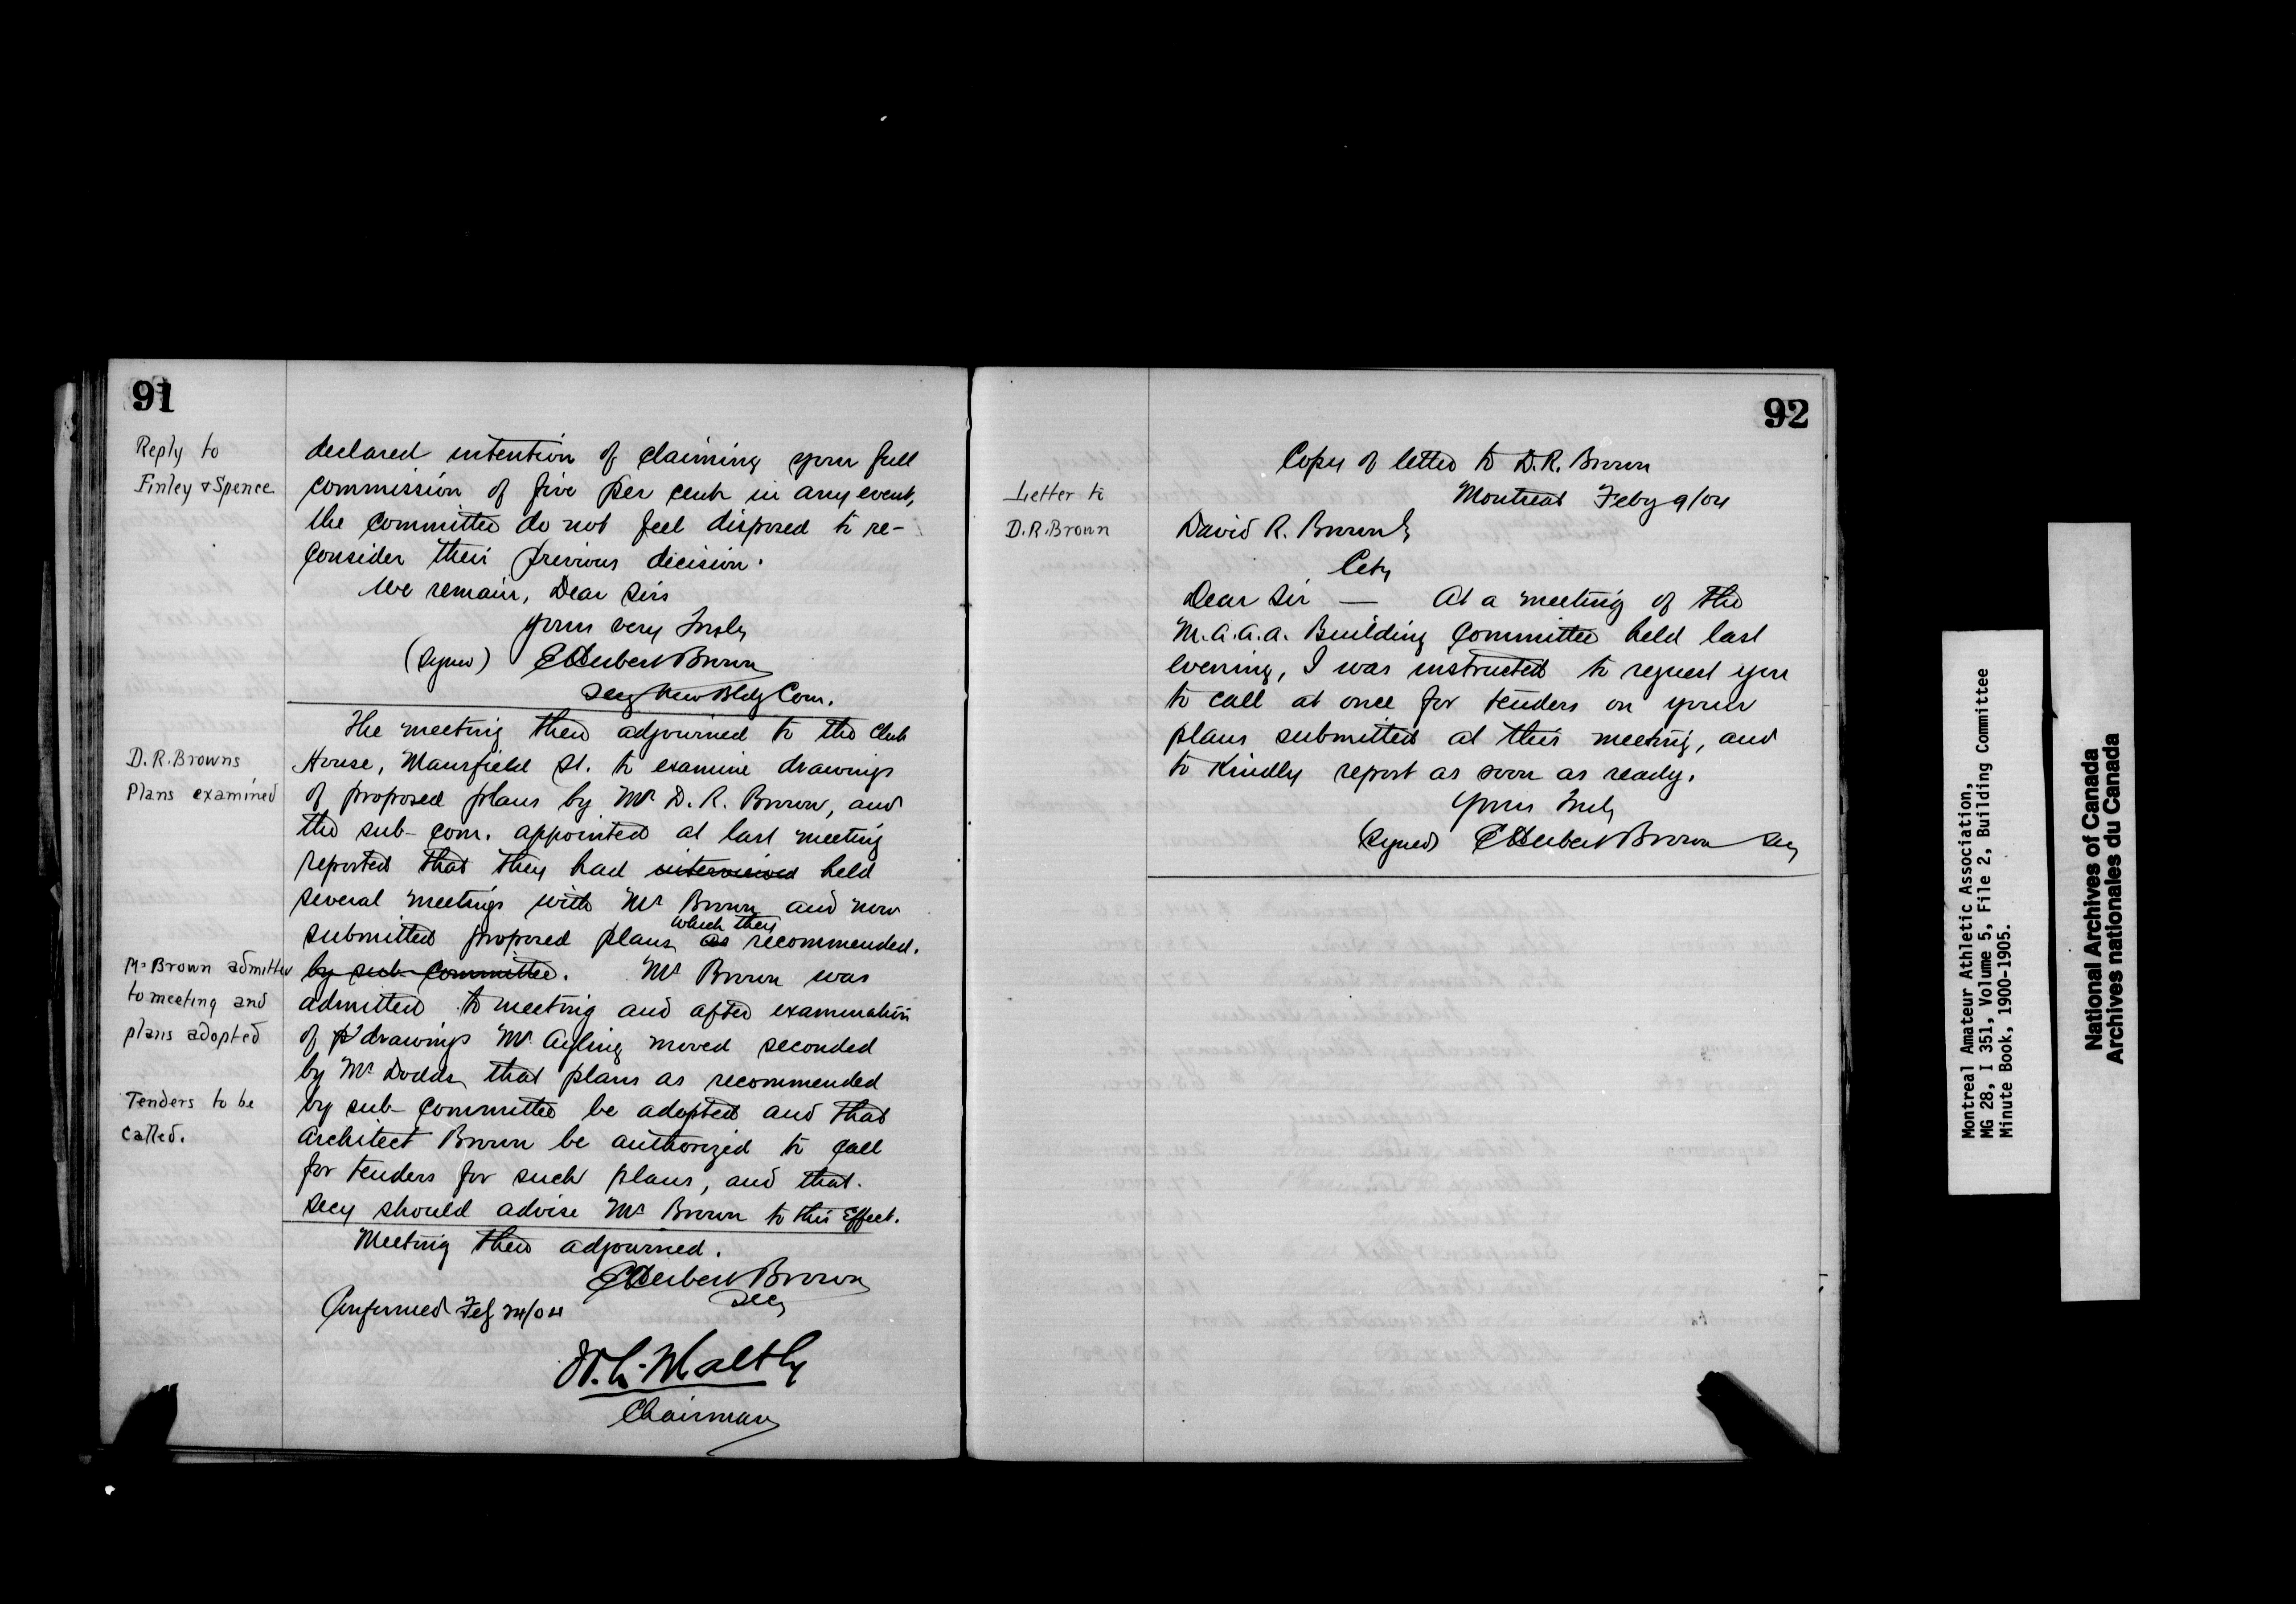 91
Reply to
Finley & Spence
declared intention of claiming your full
commission of five per cent in any event,
the committee do not feel disposed to re-
consider their previous decision.
We remain, Dear Sirs
yours very truly
(Signed) E Herbert Brown
Secy New Bldg Com.
The meeting then adjourned to the Club
D.R.Browns
Plans examined
House, Mansfield St. to examine drawings
of proposed plans by Mr D. R. Brown, and
the sub-com. appointed at last meeting
reported that they had interviewed held
several meetings with Mr Brown and now
which they
submitted proposed plans as recommended.
Mr Brown admitted
to meeting and
plans adopted
by sub-committee. Mr Brown was
admitted to meeting and after examination
of drawings Mr Ayling moved seconded
by Mr Dodds that plans as recommended
Tenders to be
called.
by sub-committee be adopted and that
Architect Brown be authorized to call
for tenders for such plans, and that
Secy should advise Mr Brown to this Effect.
Meeting then adjourned.
E Herbert Brown
Secy
Confirmed Feby 24/04
Chairman
92
Copy of letter to D.R. Brown
Montreal Feby 9/04
Letter to
D.R.Brown
David R. Brown
City
Dear Sir — At a meeting of the
M.A.A.A. Building Committee held last
evening, I was instructed to request you
to call at once for tenders on your
plans submitted at this meeting, and
to kindly report as soon as ready.
Yours truly
(Signed) E Herbert Brown Secy
Montreal Amateur Athletic Association,
MG 28, I 351, Volume 5, File 2, Building Committee
Minute Book, 1900-1905.
National Archives of Canada
Archives nationales du Canada